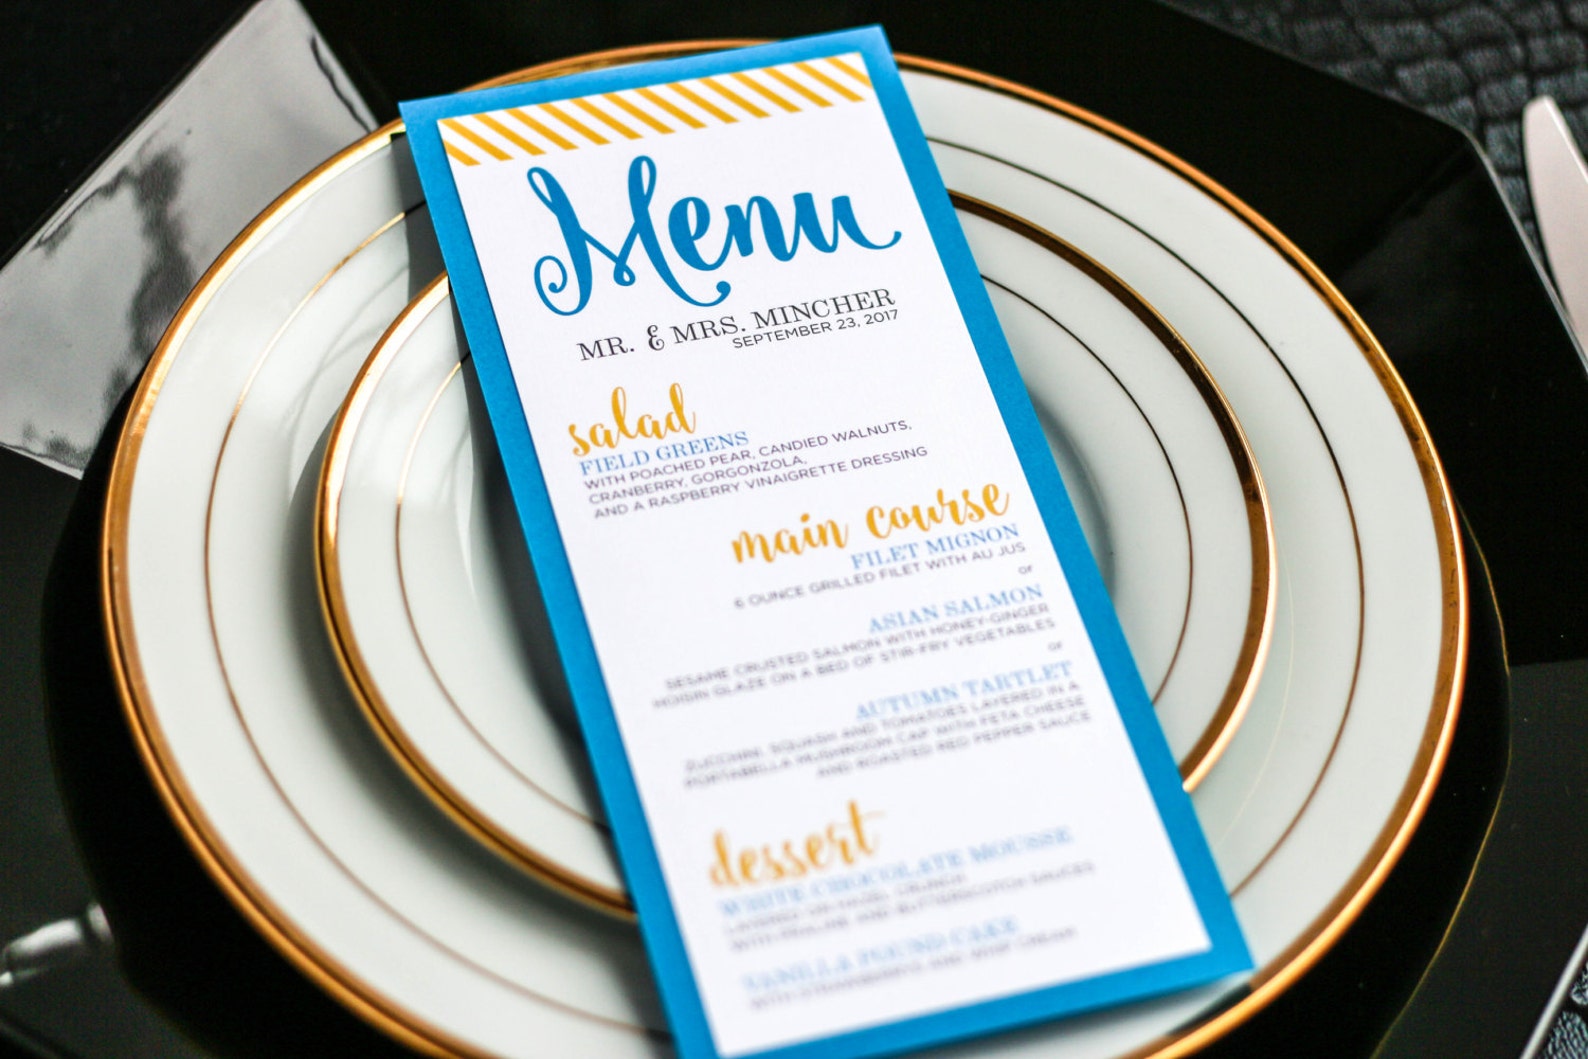 Menu
MR. & MRS. MINCHER
SEPTEMBER 23, 2017
salad
FIELD GREENS
WITH POACHED PEAR, CANDIED WALNUTS,
CRANBERRY, GORGONZOLA,
AND A RASPBERRY VINAIGRETTE DRESSING
main course
FILET MIGNON
6 OUNCE GRILLED FILET WITH AU JUS
or
ASIAN SALMON
SESAME CRUSTED SALMON WITH HONEY-GINGER
HOISIN GLAZE ON A BED OF STIR-FRY VEGETABLES
or
AUTUMN TARTLET
ZUCCHINI, SQUASH AND TOMATOES LAYERED IN A
PORTABELLA MUSHROOM CAP WITH FETA CHEESE
AND ROASTED RED PEPPER SAUCE
dessert
WHITE CHOCOLATE MOUSSE
LAYERED ON HAZEL CRUNCH
WITH PRALINE AND BUTTERSCOTCH SAUCES
VANILLA POUND CAKE
WITH STRAWBERRYS AND WHIP CREAM